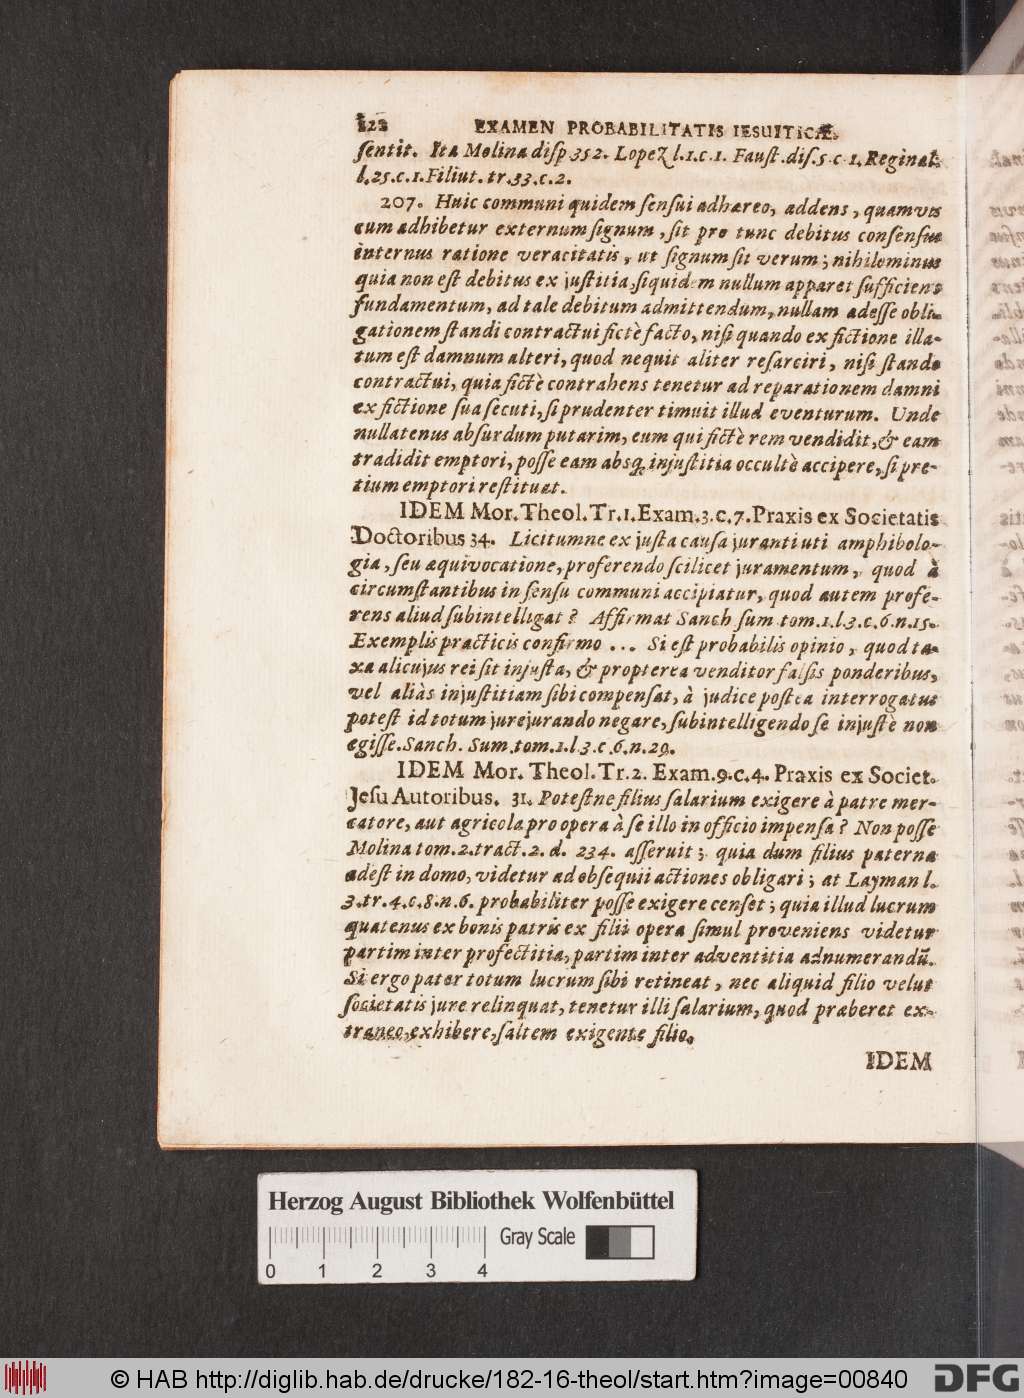 122 EXAMEN PROBABILITATIS IESUITICÆ.
ſentit. Ita Molina diſp 352. Lopez l.1.c.1. Fauſt.diſ.5.c.1. Reginal.
l.25.c.1. Filiut. tr.33.c.2.
207. Huic communi quidem ſenſui adhæreo, addens, quamvis
cum adhibetur externum ſignum, ſit pro tunc debitus conſenſus
internus ratione veracitatis, ut ſignum ſit verum; nihilominus
quia non eſt debitus ex juſtitia, ſiquidem nullum apparet ſufficiens
fundamentum, ad tale debitum admittendum, nullam adeſſe obli-
gationem ſtandi contractui fictè facto, niſi quando ex fictione illa-
tum eſt damnum alteri, quod nequit aliter reſarciri, niſi ſtando
contractui, quia fictè contrahens tenetur ad reparationem damni
ex fictione ſua ſecuti, ſi prudenter timuit illud eventurum. Unde
nullatenus abſurdum putarim, eum qui fictè rem vendidit, & eam
tradidit emptori, poſſe eam absq; injuſtitia occultè accipere, ſi pre-
tium emptori reſtituat.
IDEM Mor. Theol. Tr.1. Exam.3.c.7. Praxis ex Societatis
Doctoribus 34. Licitumne ex juſta cauſa juranti uti amphibolo-
gia, ſeu æquivocatione, proferendo ſcilicet juramentum, quod à
circumſtantibus in ſenſu communi accipiatur, quod autem profe-
rens aliud ſubintelligat? Affirmat Sanch ſum tom.1.l.3.c.6.n.15.
Exemplis practicis confirmo ... Si eſt probabilis opinio, quod ta-
xa alicujus rei ſit injuſta, & propterea venditor falſis ponderibus,
vel aliàs injuſtitiam ſibi compenſat, à judice poſtea interrogatus
poteſt id totum jurejurando negare, ſubintelligendo ſe injuſtè non
egiſſe. Sanch. Sum.tom.1.l.3.c.6.n.29.
IDEM Mor. Theol. Tr.2. Exam.9.c.4. Praxis ex Societ.
Jeſu Autoribus. 31. Poteſtne filius ſalarium exigere à patre mer-
catore, aut agricola pro opera à ſe illo in officio impenſa? Non poſſe
Molina tom.2.tract.2.d. 234. aſſeruit; quia dum filius paterna
adeſt in domo, videtur ad obſequii actiones obligari; at Layman l.
3.tr.4.c.8.n.6. probabiliter poſſe exigere cenſet; quia illud lucrum
quatenus ex bonis patris ex filii opera ſimul proveniens videtur
partim inter profectitia, partim inter adventitia adnumerandũ.
Si ergo pater totum lucrum ſibi retineat, nec aliquid filio velut
ſocietatis jure relinquat, tenetur illi ſalarium, quod præberet ex-
traneo, exhibere, ſaltem exigente filio.
IDEM
Herzog August Bibliothek Wolfenbüttel
Gray Scale
0 1 2 3 4
© HAB http://diglib.hab.de/drucke/182-16-theol/start.htm?image=00840
DFG